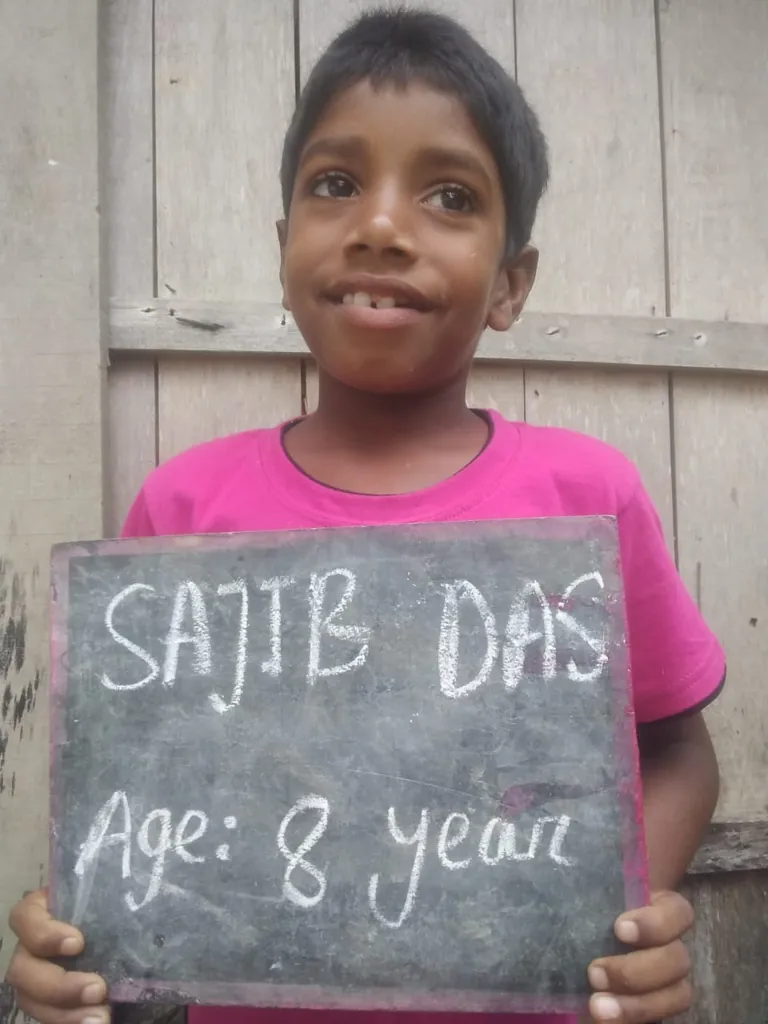 SAJIB DAS
Age: 8 year